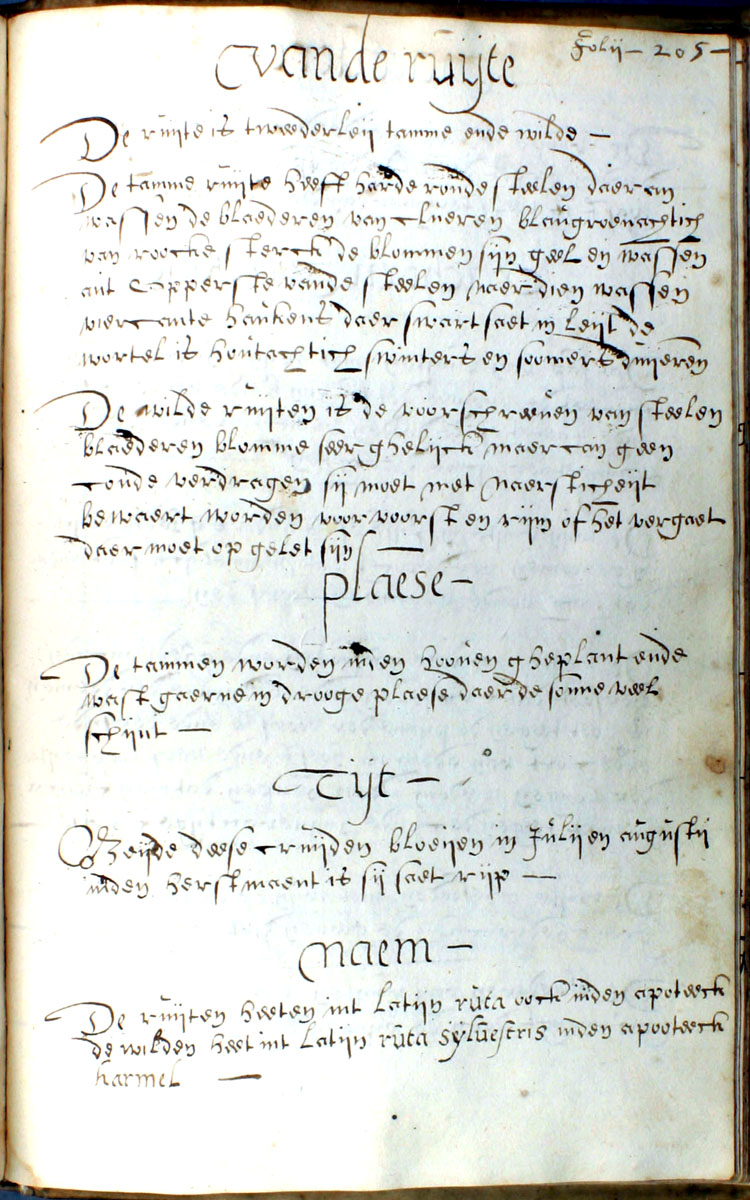 Folii - 205 -
vande ruijte
De ruijte is tweederleij tamme ende wilde -
De tamme ruijte heeft harde ronde steelen daer an
wassen de blaederen van clueren blaugroenachtich
van roocke sterck de blommen sijn geel en wassen
aut Epperste vande steelen naer dien wassen
viercante haukens daer swart saet in leijt de
wortel is houtachtich swinters en soomers duijeren
De wilde ruijten is de voorschreeven van steelen
blaederen blomme seer ghelijck maer can geen
coude verdragen sij moet met naersticheijt
bewaert worden voor voorst en rijm of het vergaet
daer moet op gelet sijn -
plaese -
De tammen worden inden hooven gheplant ende
wast gaerne in drooge plaese daer de sonne veel
schijnt -
Tijt -
Beijde deese cruijden bloeijen in Julij en augustij
inden herstmaent is sij saet rijp -
naem -
De ruijten heeten int latijn ruta oock inden apoteeck
de wilden heet int latijn ruta sijluestris inden apooteeck
harmel -